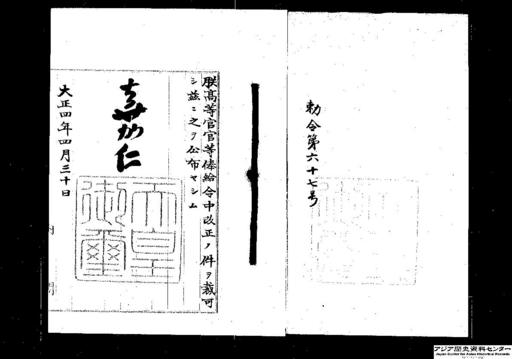 勅令第六十七号
朕高等官官等俸給令中改正ノ件ヲ裁可
シ茲ニ之ヲ公布セシム
嘉仁
天皇御璽
大正四年四月三十日
アジア歴史資料センター
Japan Center for Asian Historical Records